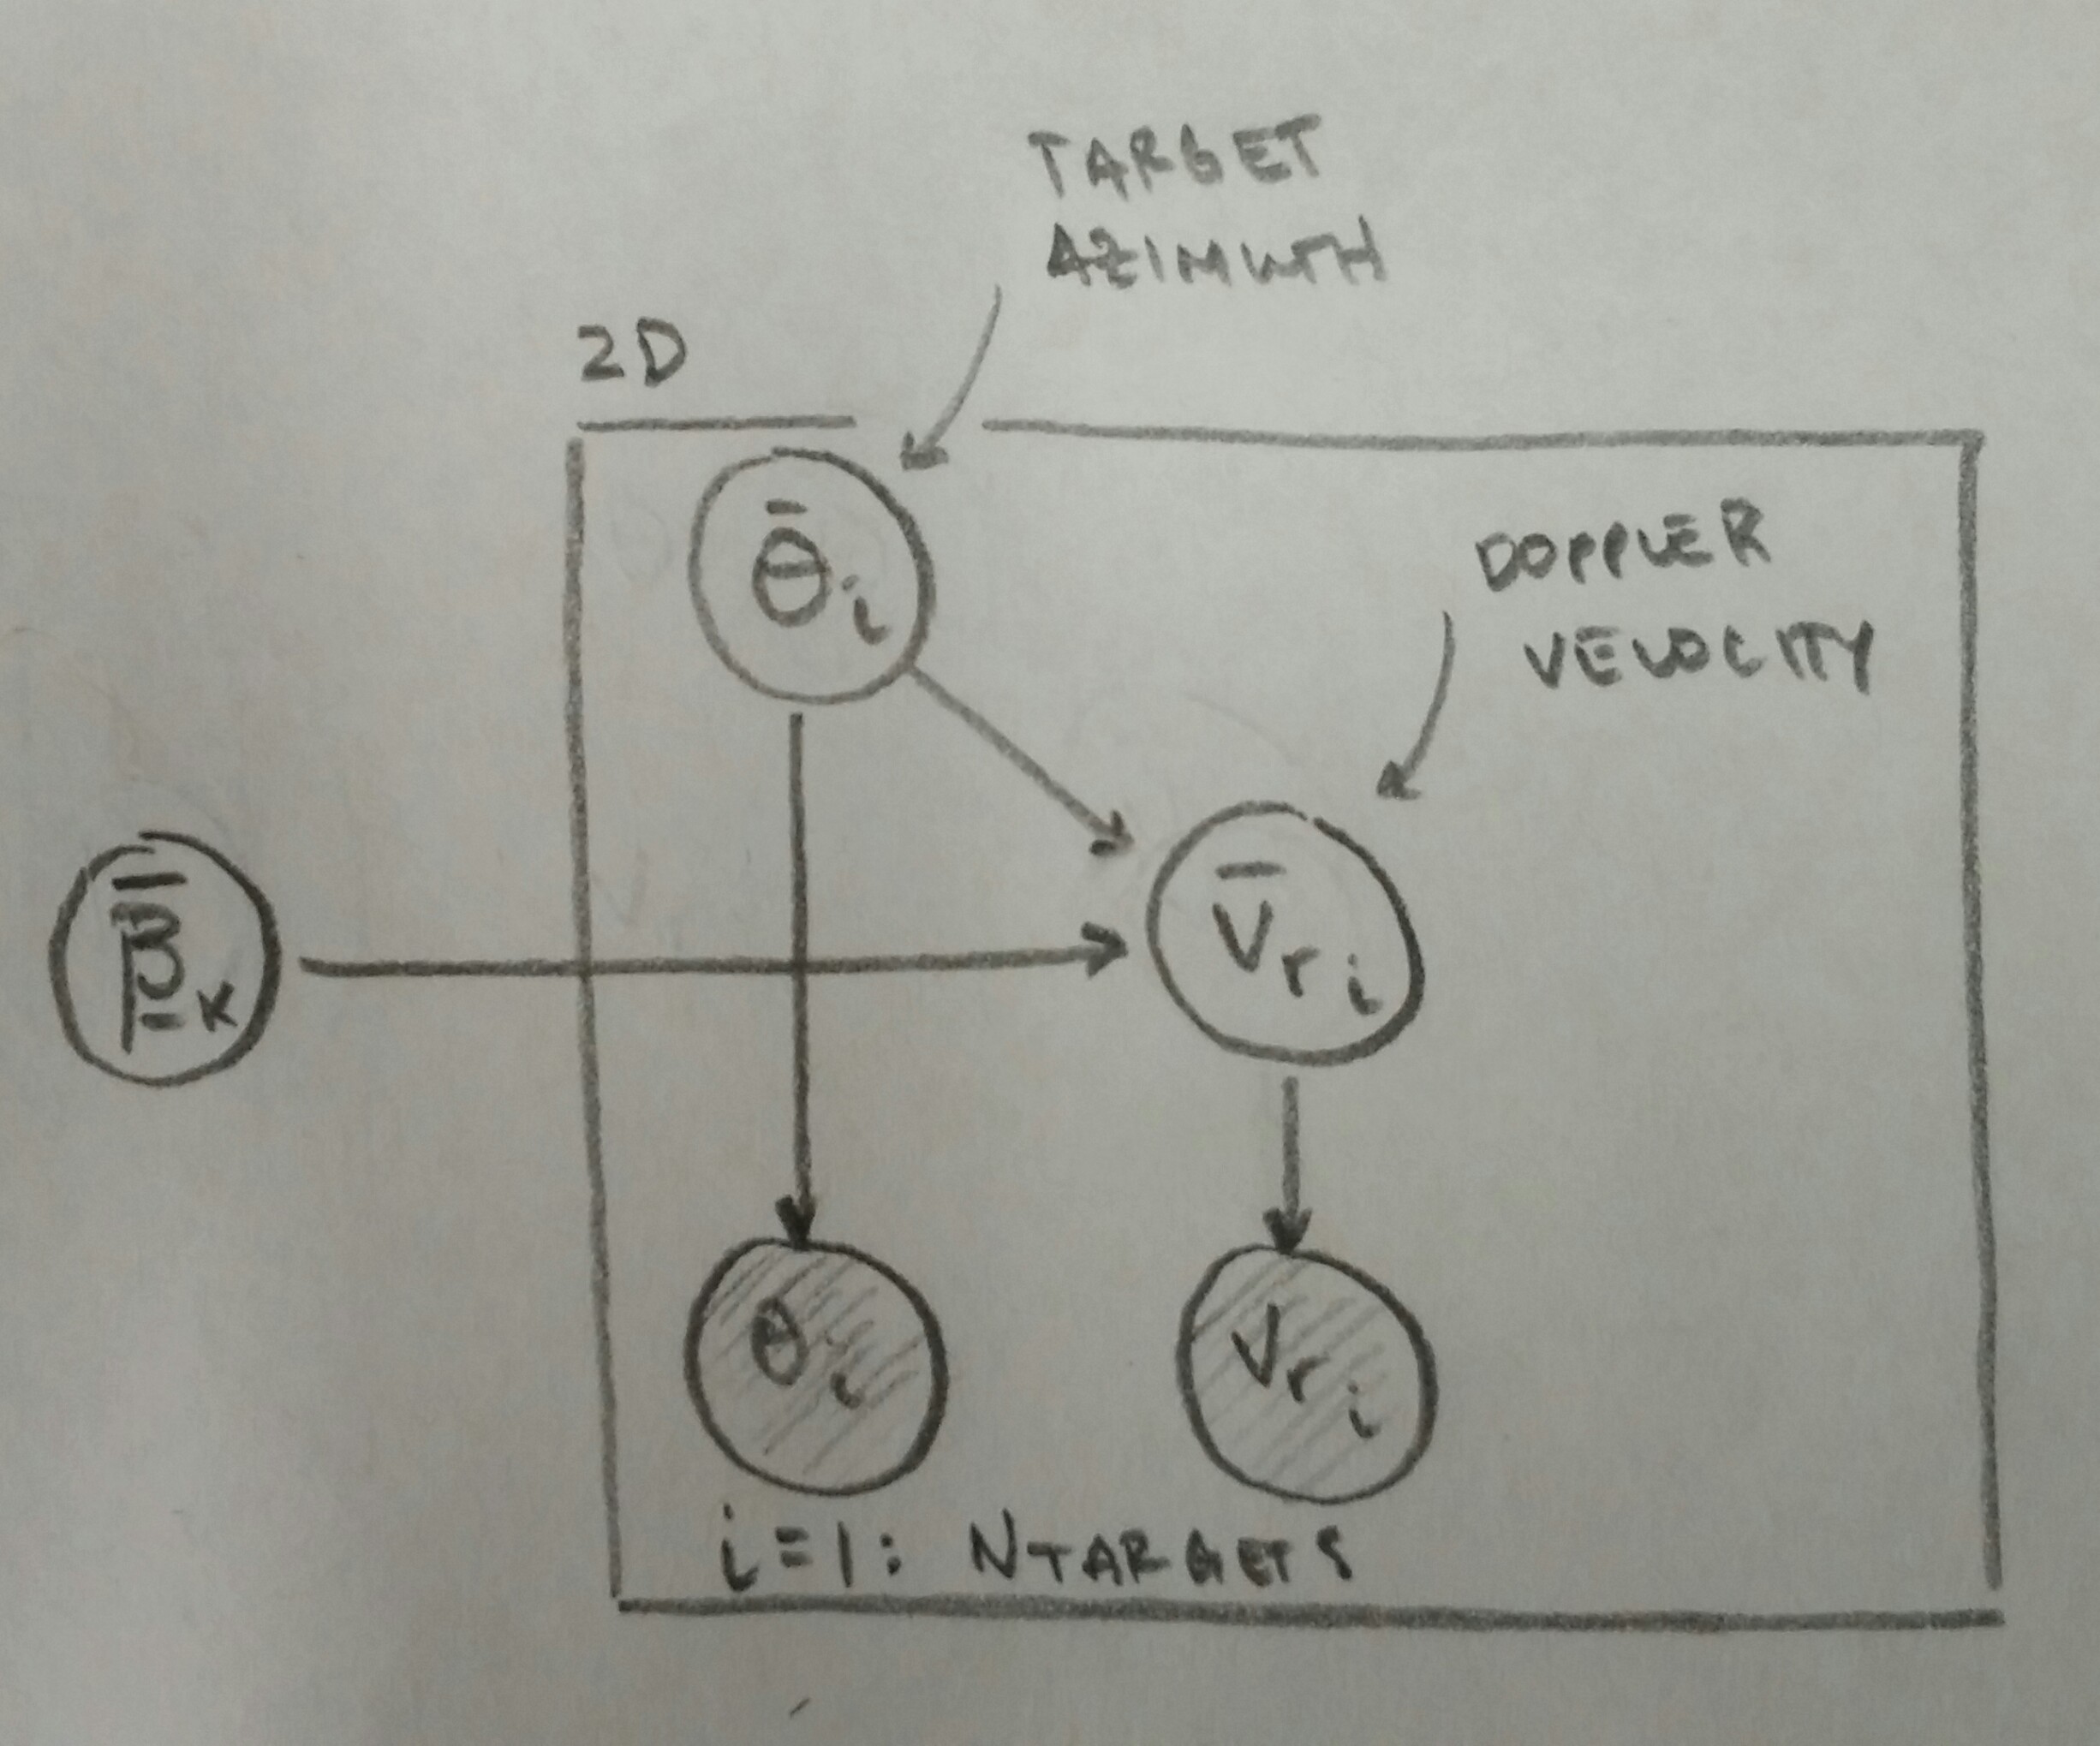 TARGET
AZIMUTH
2D
θ̄i
DOPPLER
VELOCITY
β̱̄k
V̄ri
θi
Vri
i=1: NTARGETS